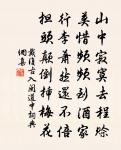 山中寂寞去程賒
莫惜頻頻到酒家
行李蕭然還不俗
担頭顛倒挿梅花
戴復古入閩道中詞典
網集